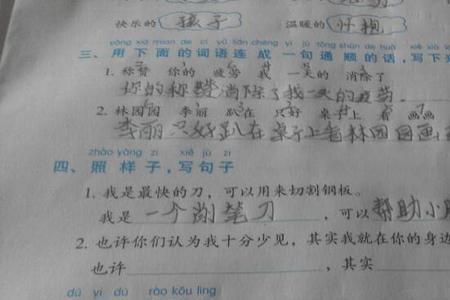 快乐的(孩子) 温暖的(怀抱)
yòng xià miàn de cí yǔ lián chéng yí jù tōng shùn de huà
三、用下面的词语连成一句通顺的话,写下
1. 称赞 你的 疲劳 我 一天的 消除了
你的称赞消除了我一天的疲劳.
2. 林园园 李丽 趴在 只好 桌上 看 画画
李丽只好趴在桌子上看林园园画
zhào yàng zi xiě jù zi
四、照样子,写句子
1. 我是最快的刀,可以用来切割钢板。
我是一个削笔刀,可以帮助小
2. 也许你们认为我十分少见,其实我就在你的身边
也许 ,其实
dú yi dú rào kǒu lìng